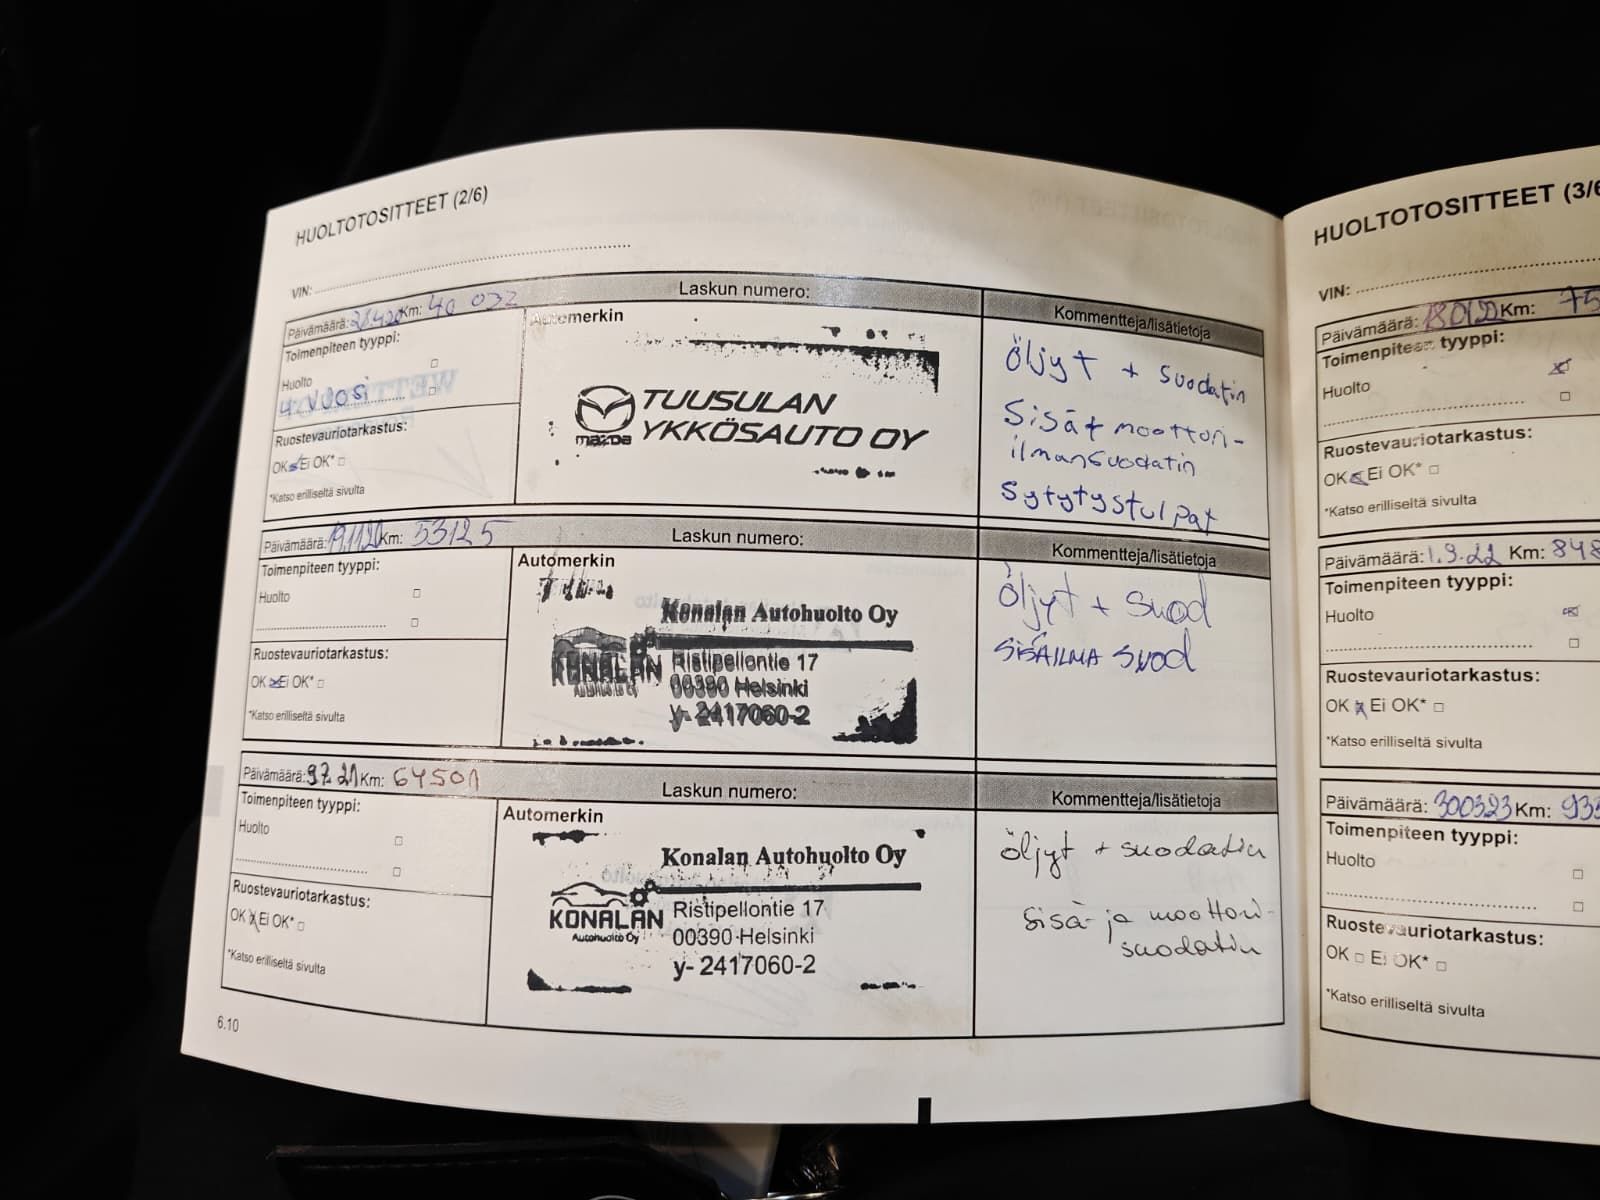 HUOLTOTOSITTEET (2/6)
VIN:
Päivämäärä: Km: 40 032
Laskun numero:
Kommentteja/lisätietoja
Toimenpiteen tyyppi:
Huolto
4. vuosi
Ruostevauriotarkastus:
OK Ei OK*
*Katso erilliseltä sivulta
Automerkin
mazda
TUUSULAN
YKKÖSAUTO OY
öljyt + suodatin
Sisä + moottori-
ilmansuodatin
Sytytystulpat
Päivämäärä: 19.11.20 Km: 53125
Laskun numero:
Kommentteja/lisätietoja
Toimenpiteen tyyppi:
Huolto
Ruostevauriotarkastus:
OK Ei OK*
*Katso erilliseltä sivulta
Automerkin
Konalan Autohuolto Oy
KONALAN
Autohuolto Oy
Ristipellontie 17
00390 Helsinki
y- 2417060-2
öljyt + suod
SISÄILMA SUOD
Päivämäärä: 9.7.21 Km: 64501
Laskun numero:
Kommentteja/lisätietoja
Toimenpiteen tyyppi:
Huolto
Ruostevauriotarkastus:
OK Ei OK*
*Katso erilliseltä sivulta
Automerkin
Konalan Autohuolto Oy
KONALAN
Autohuolto Oy
Ristipellontie 17
00390 Helsinki
y- 2417060-2
öljyt + suodatin
Sisä- ja moottori-
suodatin
6.10
HUOLTOTOSITTEET (3/6
VIN:
Päivämäärä: Km: 75
Toimenpiteen tyyppi:
Huolto
Ruostevauriotarkastus:
OK Ei OK*
*Katso erilliseltä sivulta
Päivämäärä: 1.9.22 Km: 848
Toimenpiteen tyyppi:
Huolto
Ruostevauriotarkastus:
OK Ei OK*
*Katso erilliseltä sivulta
Päivämäärä: 300323 Km: 933
Toimenpiteen tyyppi:
Huolto
Ruostevauriotarkastus:
OK Ei OK*
*Katso erilliseltä sivulta